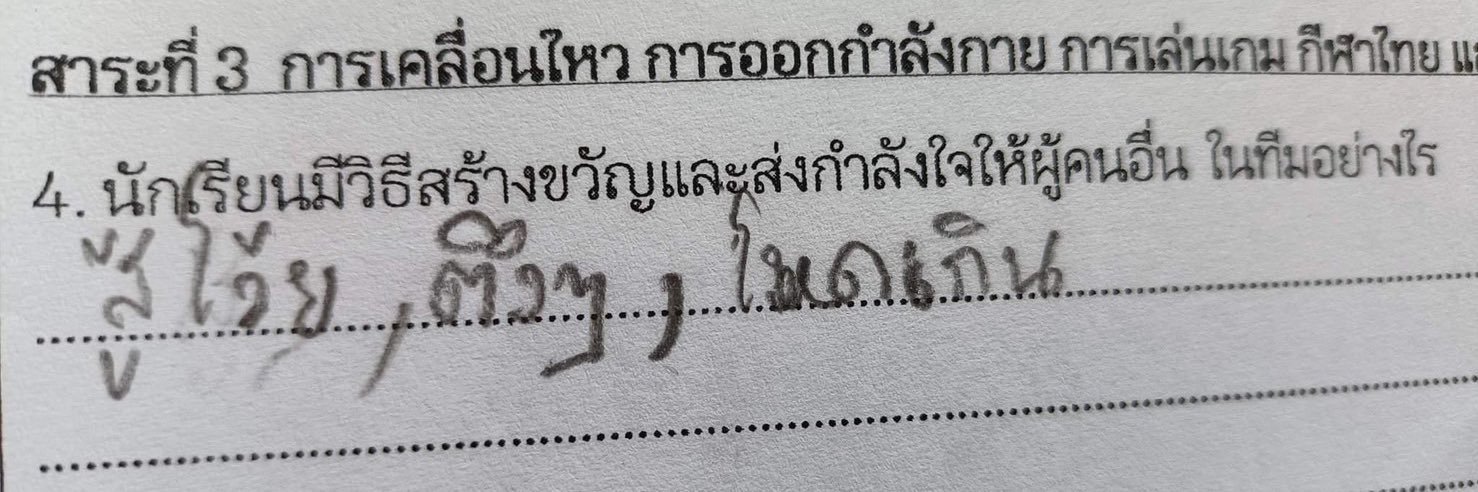 สาระที่ 3 การเคลื่อนไหว การออกกำลังกาย การเล่นเกม กีฬาไทย
4. นักเรียนมีวิธีสร้างขวัญและส่งกำลังใจให้ผู้คนอื่น ในทีมอย่างไร
สู้โว้ย, ตึงๆ, โหดเกิน